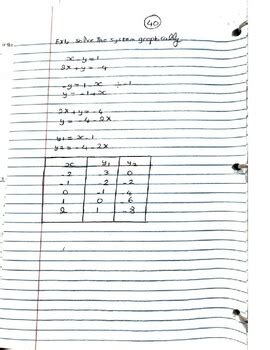 40
Ex4. solve the system graphically.
x - y = 1
2x + y = -4
-y = 1 - x ÷ -1
y = -1 + x
2x + y = -4
y = -4 - 2x
y1 = x - 1
y2 = -4 - 2x
x y1 y2
-2 -3 0
-1 -2 -2
0 -1 -4
1 0 -6
2 1 -8